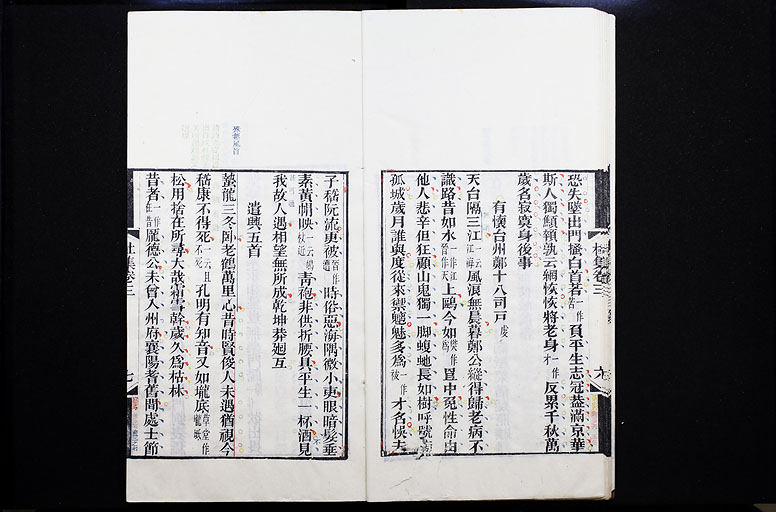 恐失墜出門搔白首若一作苦負平生志冠蓋滿京華
斯人獨顦顇孰云網恢恢將老身一作才反累千秋萬
歲名寂寞身後事
有懷台州鄭十八司戶虔
天台隔三江一云江海風浪無晨暮鄭公縱得歸老病不
識路昔如水一作江上鷗今如罝中兔性命由
他人悲辛但狂顧山鬼獨一脚蝮蛇長如樹呼號
孤城歲月誰與度從來禦魑魅多為一作被才名悞夫
子嵇阮流更被時俗惡海隅微小吏眼暗髮垂
素黃帽映青袍非供折腰具平生一杯酒見
我故人遇相望無所成乾坤莽廻互
遣興五首
蟄龍三冬臥老鶴萬里心昔時賢俊人未遇猶視今
嵇康不得死一云且不死孔明有知音又如壠底草堂作隴坻
松用捨在所尋大哉霜雪榦歲久為枯林
昔者一作在昔龐德公未曾入州府襄陽耆舊間處士節
杜集卷三
七
杜集卷三